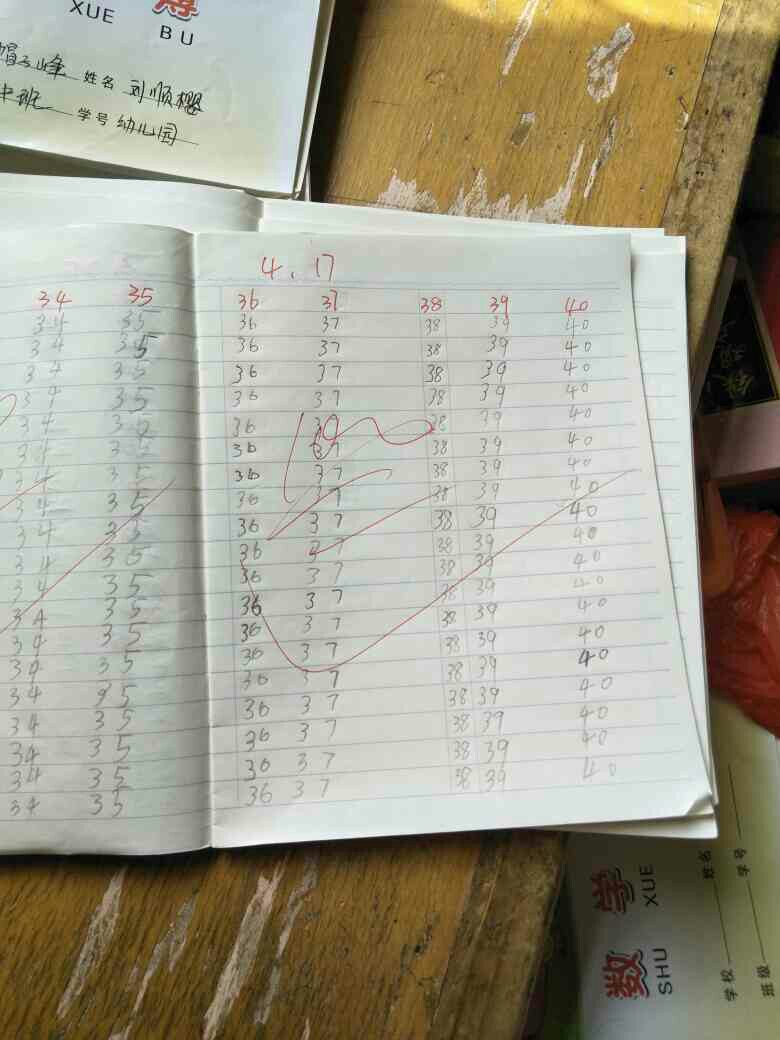 簿
XUE BU
帽子峰 姓名 刘顺樱
中班 学号 幼儿园
4.17
34 35 36 37 38 39 40
34 35 36 37 38 39 40
34 35 36 37 38 39 40
34 35 36 37 38 39 40
34 35 36 37 38 39 40
34 35 36 37 38 39 40
34 35 36 37 38 39 40
34 35 36 37 38 39 40
34 35 36 37 38 39 40
34 35 36 37 38 39 40
34 35 36 37 38 39 40
34 35 36 37 38 39 40
34 35 36 37 38 39 40
34 35 36 37 38 39 40
34 35 36 37 38 39 40
34 35 36 37 38 39 40
34 35 36 37 38 39 40
34 35 36 37 38 39 40
34 35 36 37 38 39 40
34 35 36 37 38 39 40
数学
SHU XUE
学校 姓名
班级 学号